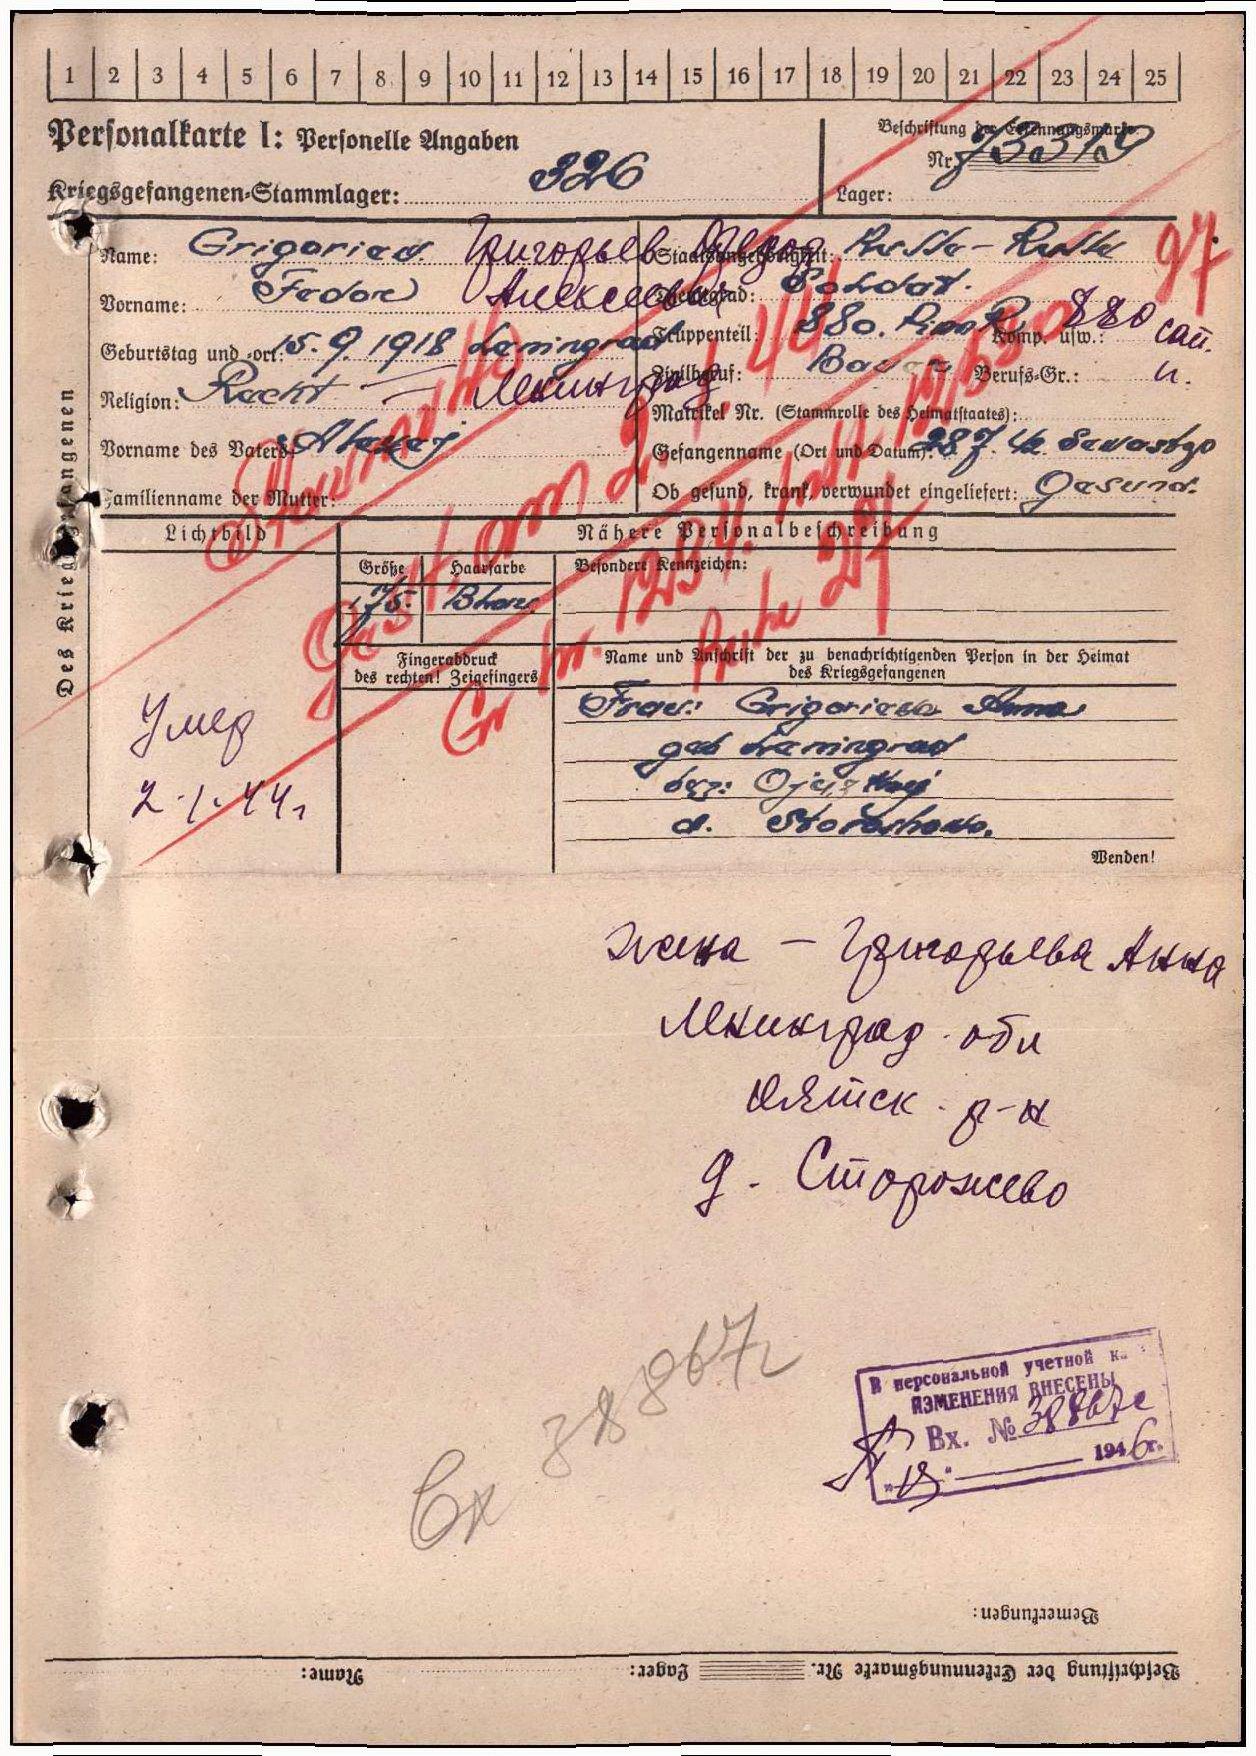 1 2 3 4 5 6 7 8 9 10 11 12 13 14 15 16 17 18 19 20 21 22 23 24 25
Personalkarte I: Personelle Angaben
Beschriftung der Erkennungsmarke
Nr. 73319
Kriegsgefangenen-Stammlager: 326
Lager:
Des Kriegsgefangenen
Name: Grigoriew Григорьев Федор
Staatsangehörigkeit: Russe - Russe
97
Vorname: Fedor Алексеевич
Dienstgrad: Soldat.
Geburtstag und -ort: 15.9.1918 Leningrad
Truppenteil: 880. Komp. usw.: 880 сап.
Religion: Ленинград
Zivilberuf: Bauer Berufs-Gr.: п.
Matrikel Nr. (Stammrolle des Heimatstaates):
Vorname des Vaters:
Gefangenname (Ort und Datum):
Familienname der Mutter:
Ob gesund, krank, verwundet eingeliefert: Gesund.
Gest. am 2.1.44
Lichtbild
Nähere Personalbeschreibung
Größe Haarfarbe Besondere Kennzeichen:
175.
Fingerabdruck
des rechten! Zeigefingers
Name und Anschrift der zu benachrichtigenden Person in der Heimat
des Kriegsgefangenen
Frau: Grigoriewa Anna
geb Leningrad
d. Storoshewo.
Умер
2.1.44г
Wenden!
жена - Григорьева Анна
Ленинград. обл
Оятск. р-н
д. Сторожево
Вх 38867с
В персональной учетной
ИЗМЕНЕНИЯ ВНЕСЕНЫ
Вх. № 38867с
1946 г.
Bemerkungen:
Beschriftung der Erkennungsmarke Nr. Lager: Name: